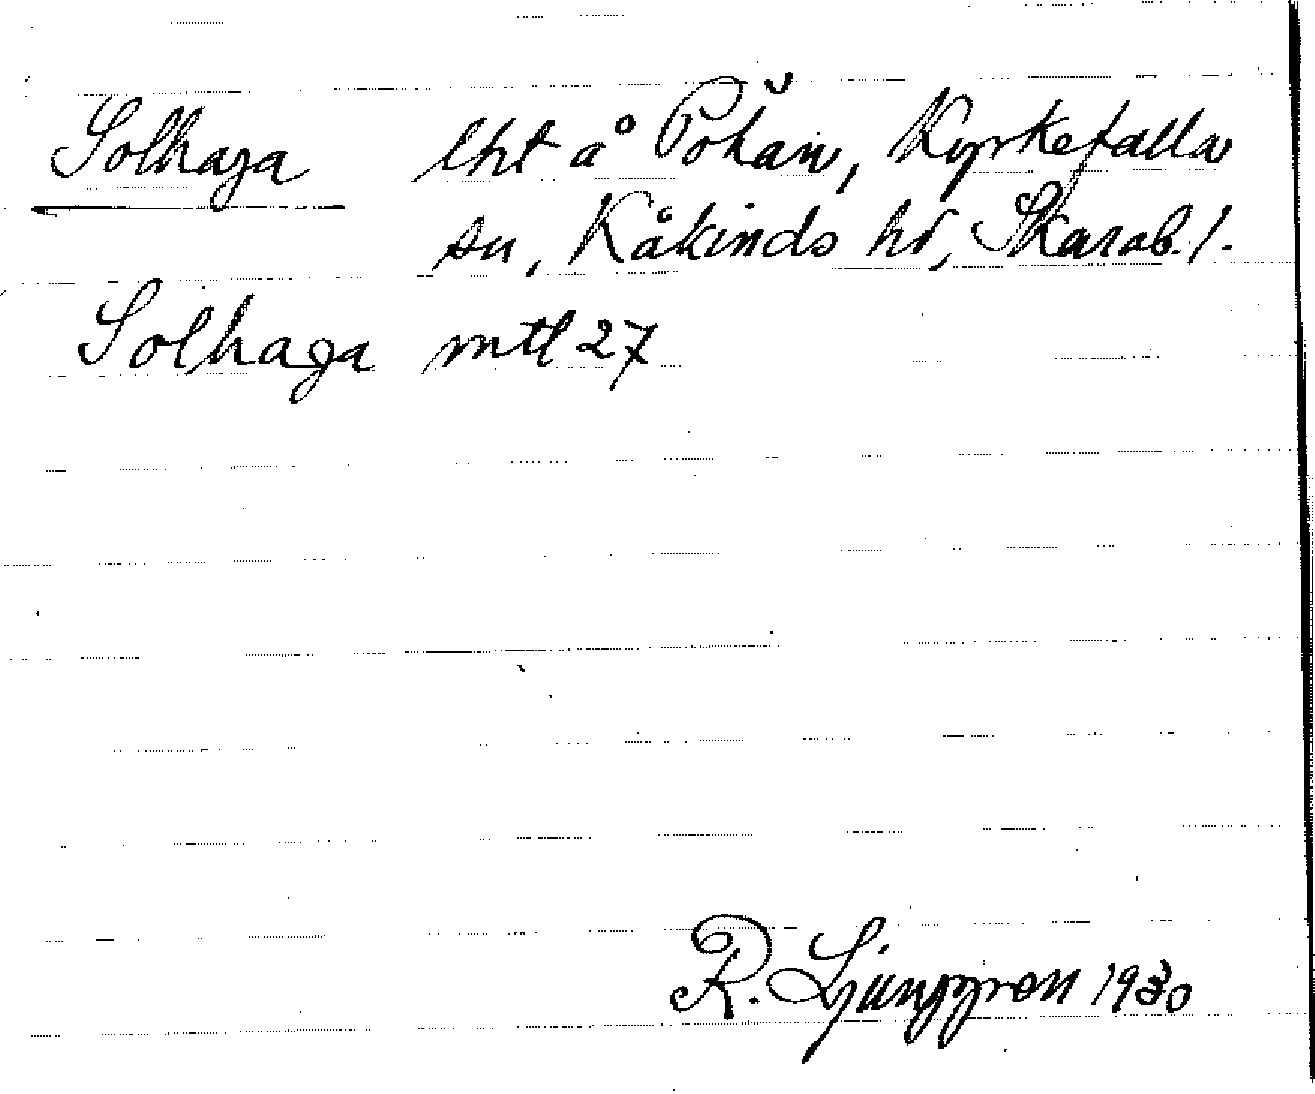 Solhaga lht å Pōkăn, Kyrkefalla
sn, Kåkinds hd, Skarab. l.
Solhaga mtl 27
R. Ljunggren 1930